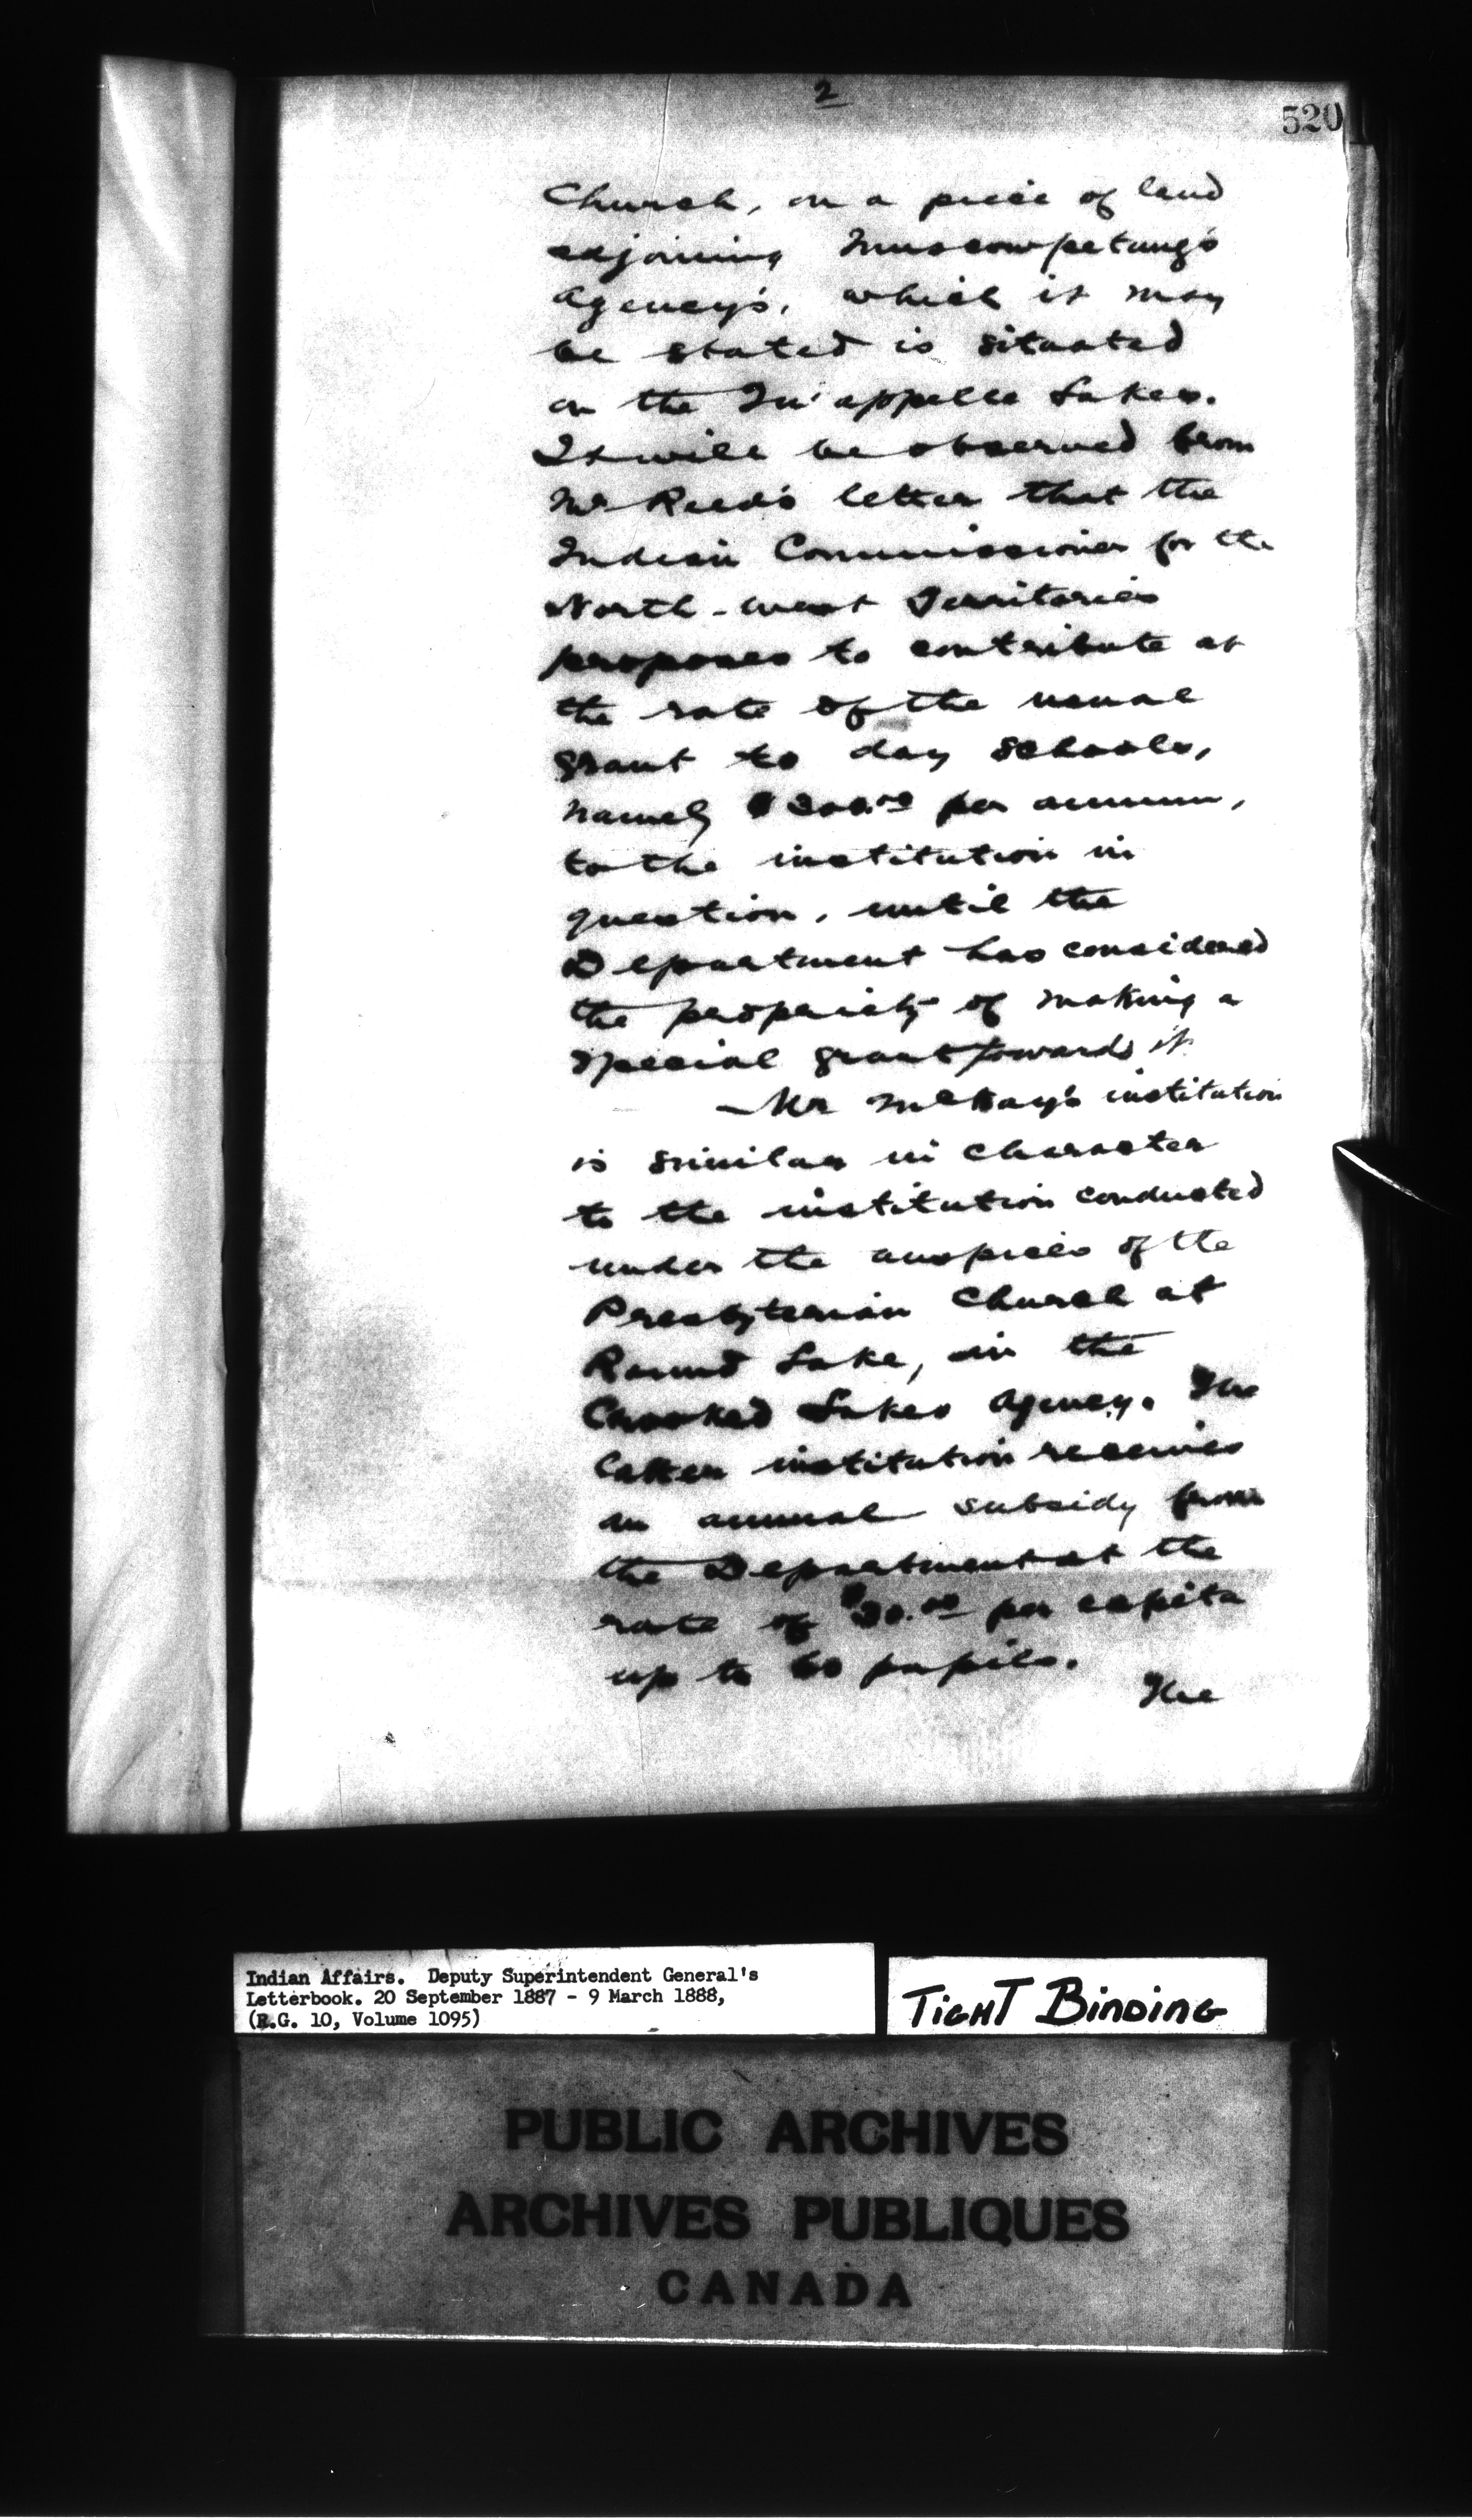 2
520
Church, on a piece of land
adjoining Muscowpetung's
Agency's, which it may
be stated is situated
on the Qu'appelle Lakes.
It will be observed from
Mr Reed's letter that the
Indian Commissioner for the
North-west Territories
proposes to contribute at
the rate of the usual
grant to day schools,
namely $300.00 per annum,
to the institution in
question, until the
Department has considered
the propriety of making a
special grant towards it
Mr McKay's institution
is similar in character
to the institution conducted
under the auspices of the
Presbyterian Church at
Round Lake, in the
Crooked Lakes Agency. The
latter institution receives
an annual subsidy from
the Department at the
rate of $30.00 per capita
up to pupils.
The
Indian Affairs. Deputy Superintendent General's
Letterbook. 20 September 1887 - 9 March 1888,
(R.G. 10, Volume 1095)
TIGHT BINDING
PUBLIC ARCHIVES
ARCHIVES PUBLIQUES
CANADA